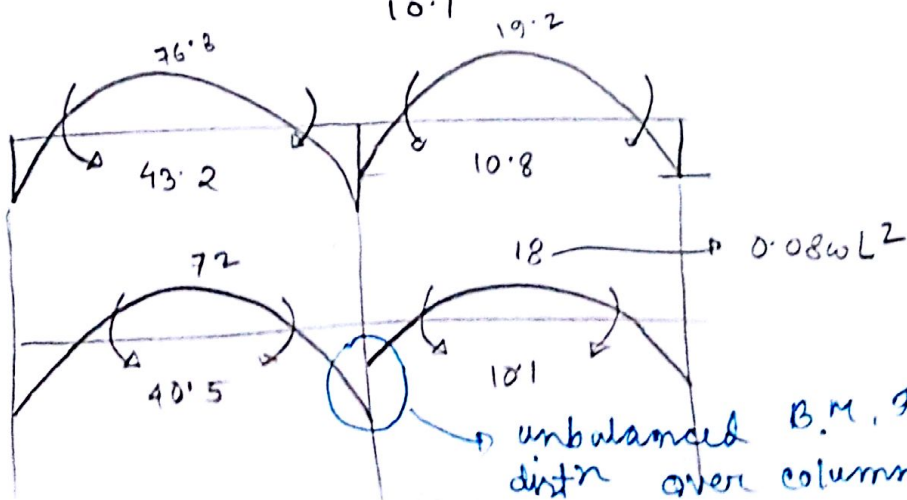 10.1
76.8 19.2
43.2 10.8
72 18 0.08ωL²
40.5 10.1
unbalanced B.M.
distn over column